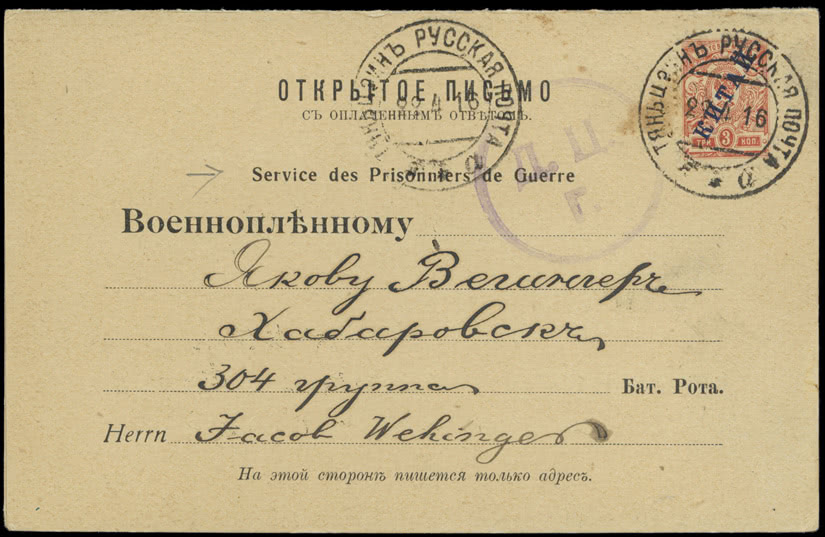 ТЯНЬЦЗИНЪ РУССКАЯ ПОЧТА
22 4 16
а
ТЯНЬЦЗИНЪ РУССКАЯ ПОЧТА
22 4 16
а
КИТАЙ
3 КОП.
ОТКРЫТОЕ ПИСЬМО
СЪ ОПЛАЧЕННЫМЪ ОТВѢТОМЪ.
Д. Ц.
Г.
Service des Prisonniers de Guerre
Военноплѣнному
Якову Вегингеръ
Хабаровскъ
304 группа Бат. Рота.
Herrn Jacob Wehinger
На этой сторонѣ пишется только адресъ.